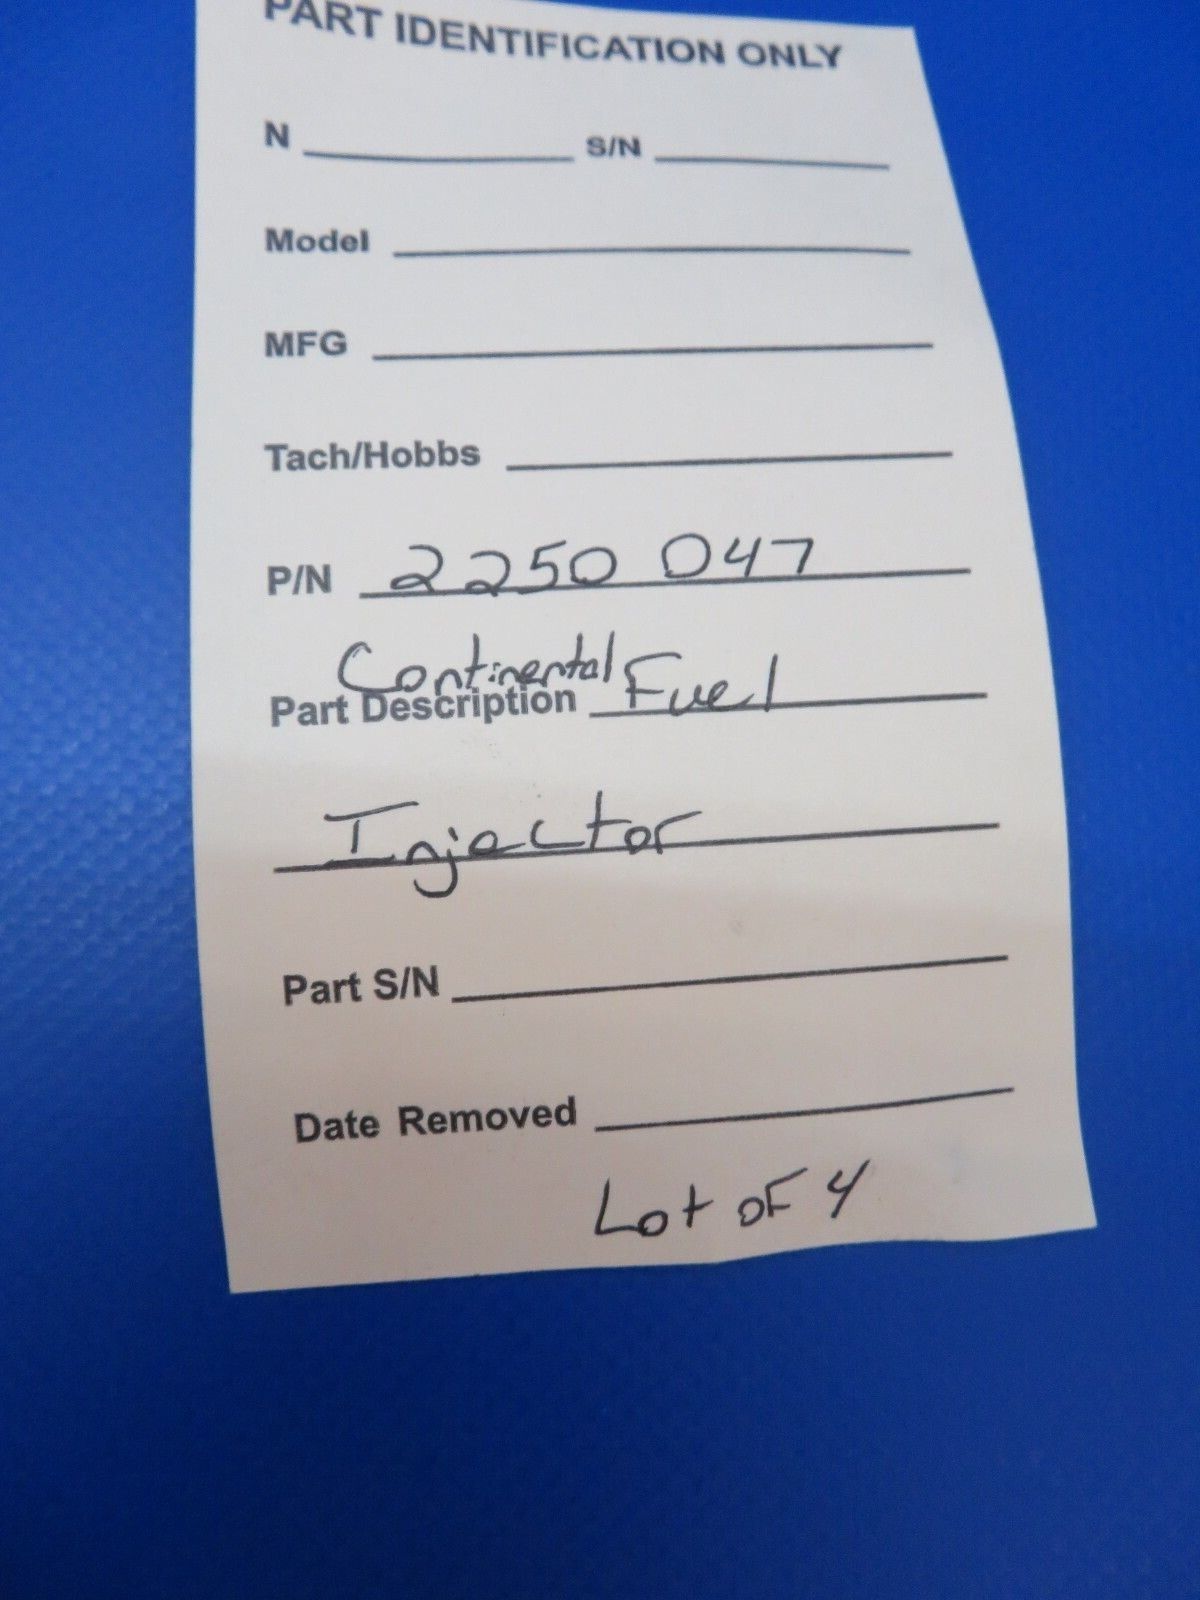 PART IDENTIFICATION ONLY
N S/N
Model
MFG
Tach/Hobbs
P/N 2250 047
Continental
Part Description Fuel
Injector
Part S/N
Date Removed
Lot of 4